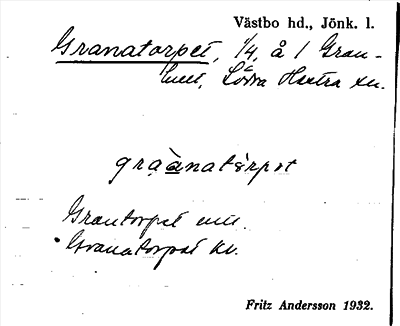 Västbo hd., Jönk. l.
Granatorpet, 1/4, å 1 Gran-
hult, Södra Hestra sn.
graànatàrpət
Grantorpet
Granatorpet
Fritz Andersson 1932.